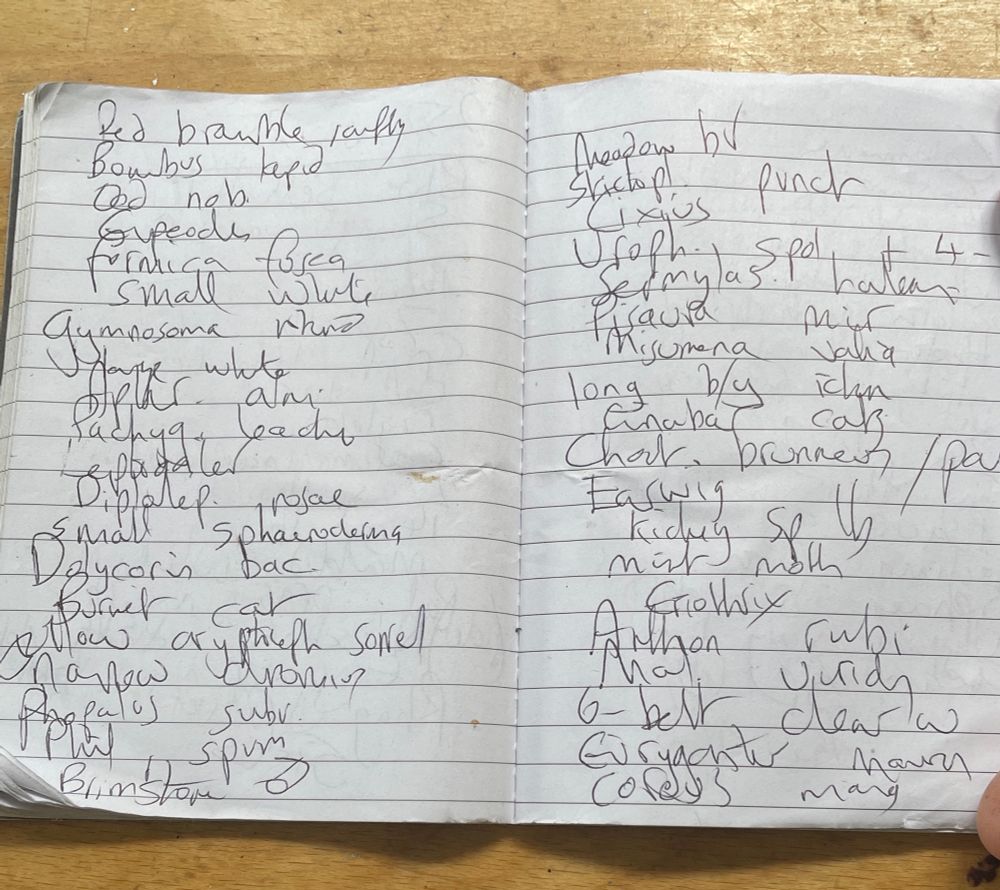 Red bramble sawfly
Bombus lapid
Oed nob.
Eupeodes
formica fusca
small white
Gymnosoma
large white
alni
Pachyg. leachi
Diplolep. rosae
small sphaeroderma
Dolycoris bac.
Burnet cat
yellow cryptceph sorrel
Narrow
Rhopalus subv.
Phil spum
Brimstone ♂
Meadow br
Stictopl. punct
Cixius
Uroph. sol + 4-
Sermylas. halens
Pisaura mir
Misumena vatia
long b/y ichn
Cinabar cats
Chort. brunneus / pa
Earwig
Kidney sp lb
mint moth
Eriothrix
Anthon rubi
Mal. viridis
6-belt clearw
Eurygaster maura
Coreus marg